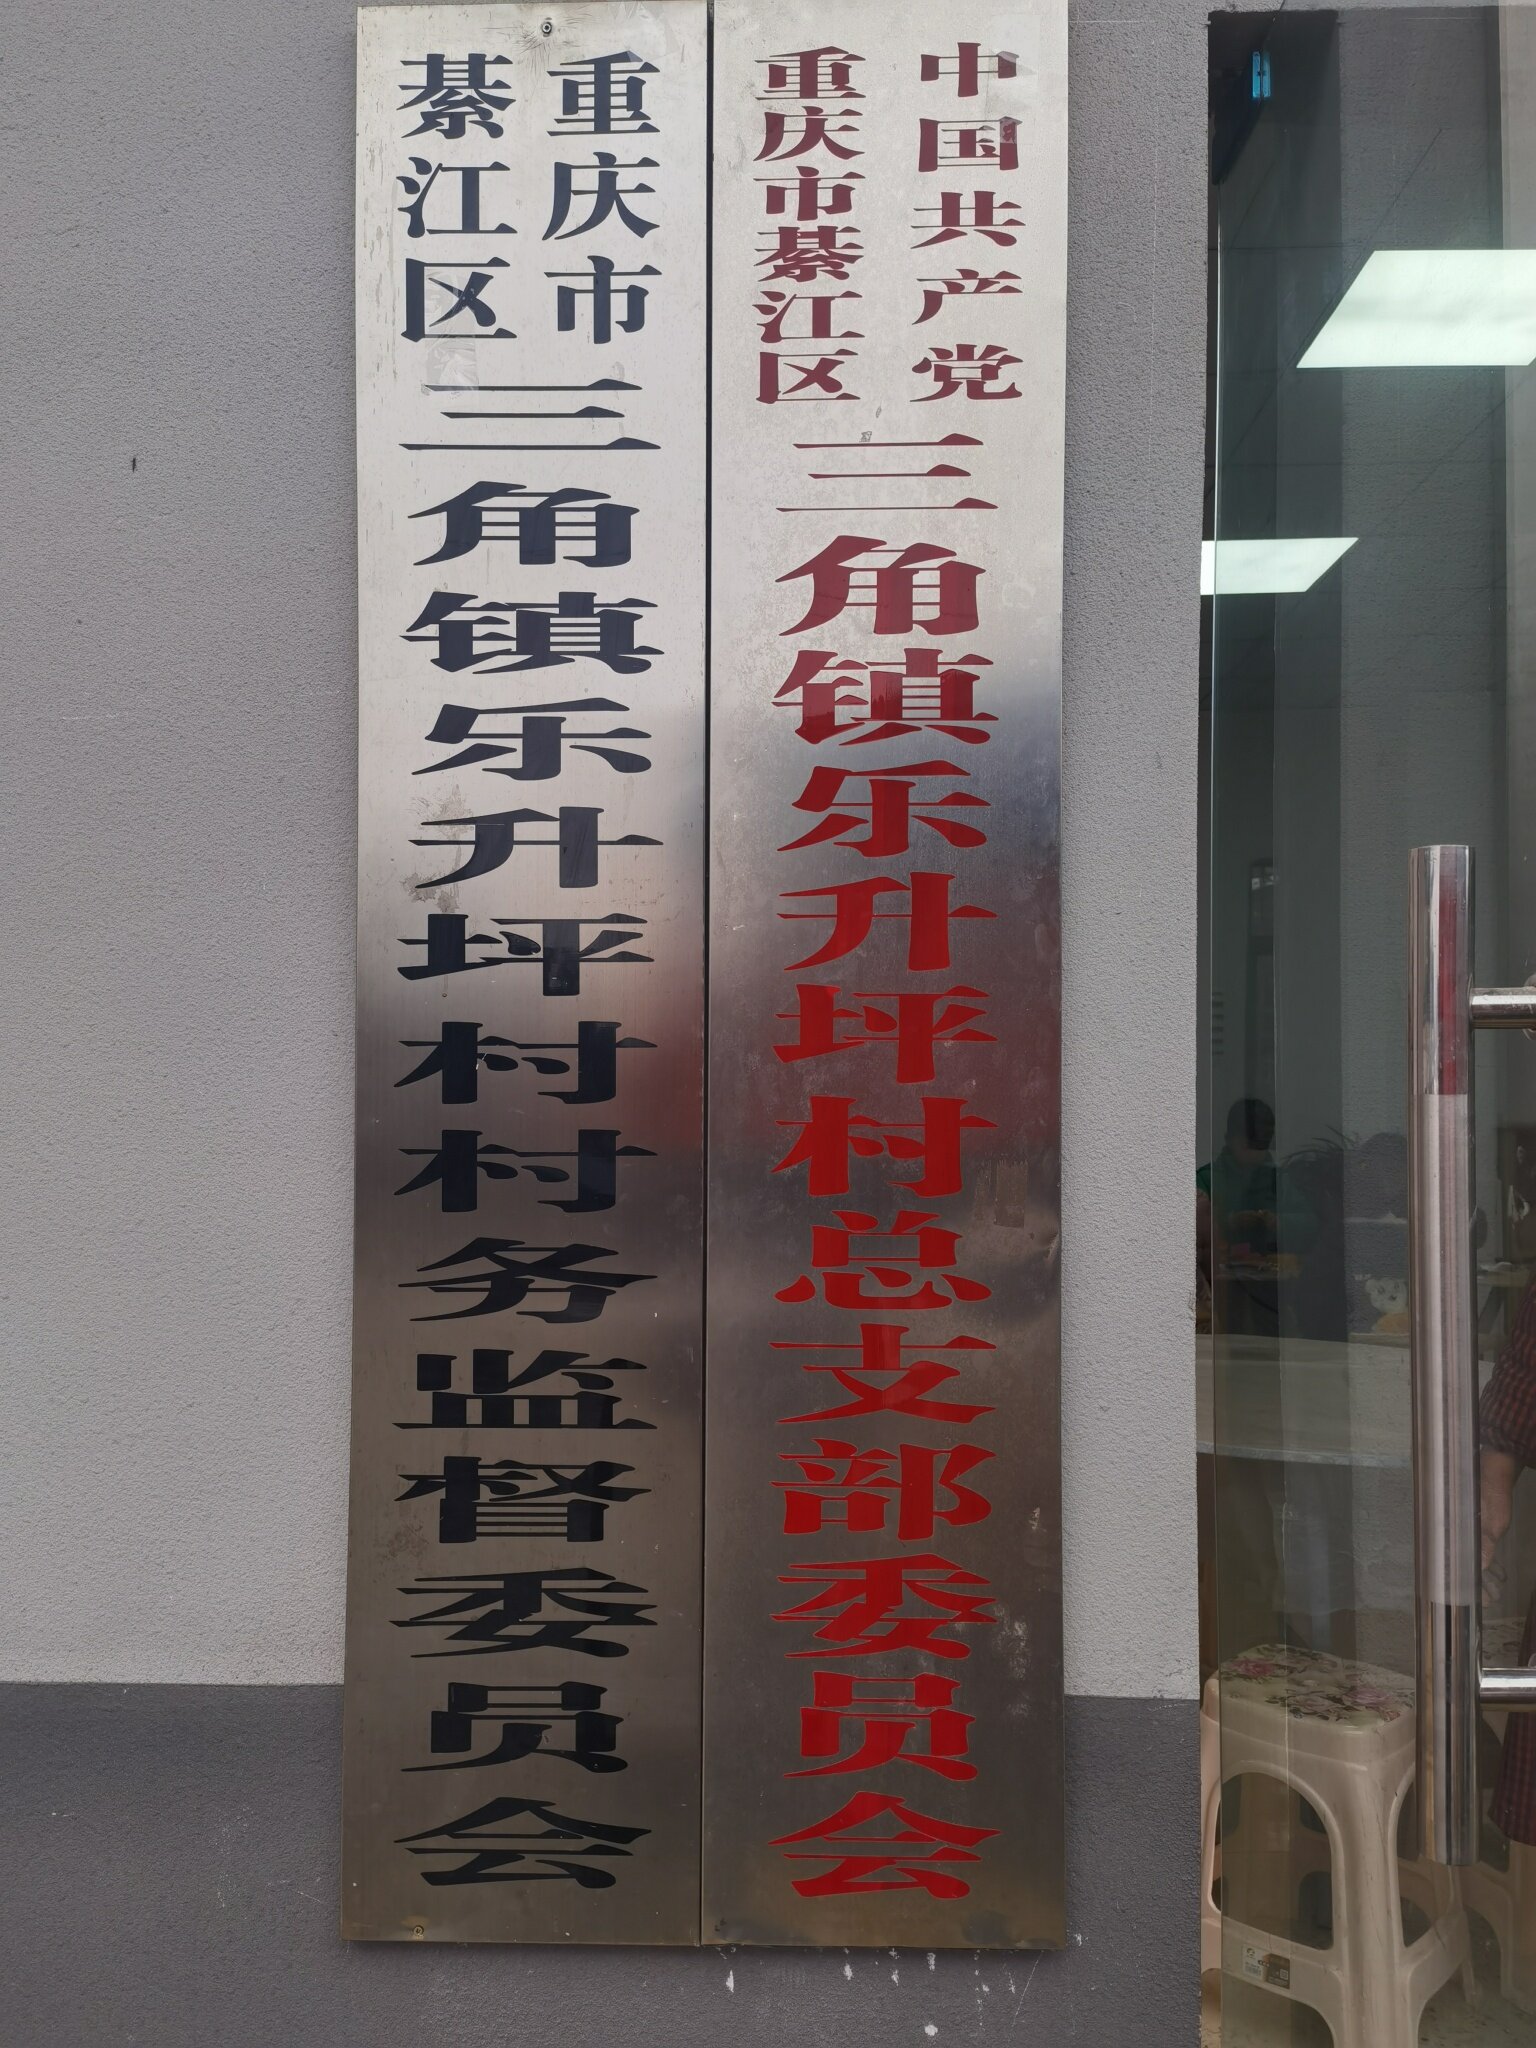 重庆市
綦江区
三角镇乐升坪村村务监督委员会
中国共产党
重庆市綦江区
三角镇乐升坪村总支部委员会